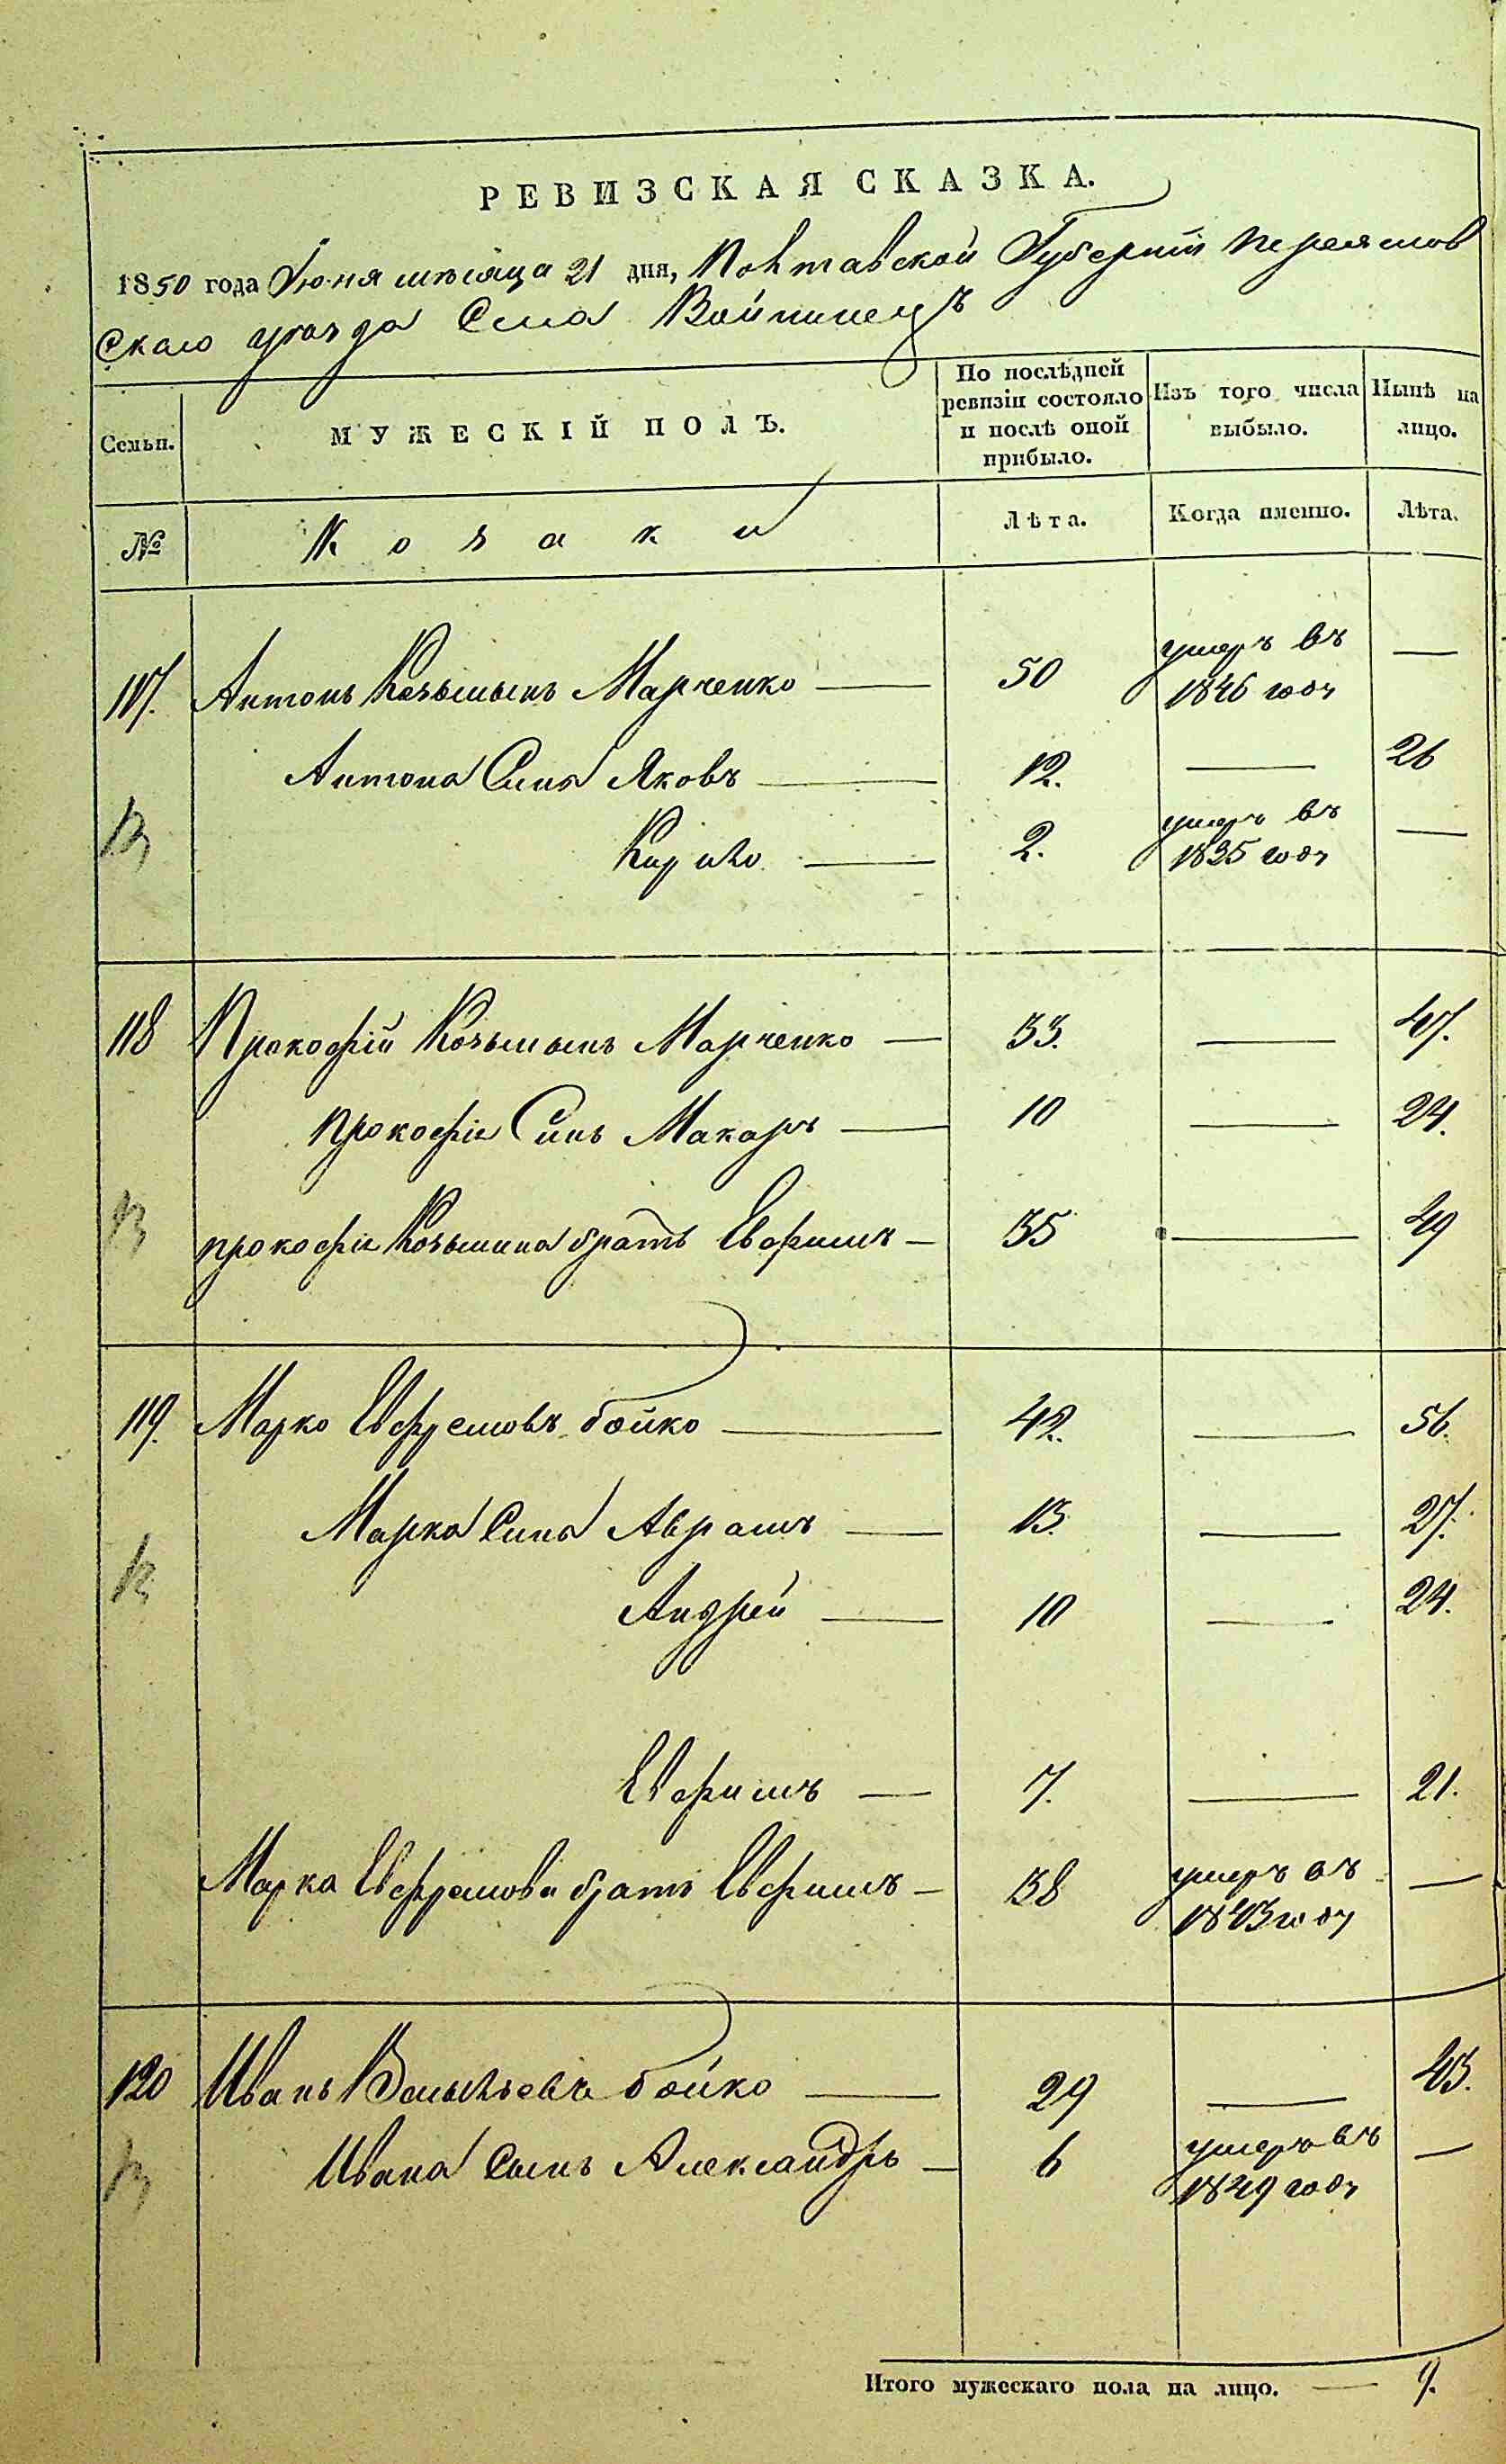 РЕВИЗСКАЯ СКАЗКА.
1850 года Іюня мѣсяца 21 дня, Полтавской Губерніи Переяслов
скаго уѣзда Села Войтовецъ
Семьи. МУЖЕСКІЙ ПОЛЪ. По послѣдней ревизіи состояло и послѣ оной прибыло. Изъ того числа выбыло. Нынѣ на лицо.
№ Козаки Лѣта. Когда именно. Лѣта.
117. Антонъ Козьминъ Марченко — 50 умеръ въ 1846 году —
Антона Сына Яковъ — 12. — 26
Кирило — 2. умеръ въ 1835 году —
118 Прокофій Козьминъ Марченко — 33. — 47.
Прокофія Сынъ Макаръ — 10 — 24.
прокофія Козьмина братъ Евфимъ — 35 — 49
119. Марко Евфремовъ бойко — 42. — 56.
Марка Сына Аврамъ — 13. — 27.
Андрей — 10 — 24.
Евфимъ — 7. — 21.
Марка Евфремова братъ Евфимъ — 38 умеръ въ 1843 году —
120 Иванъ Васильевъ бойко — 29 — 43.
Ивана Сынъ Александръ — 6 умеръ въ 1849 году —
Итого мужескаго пола на лицо. — 9.